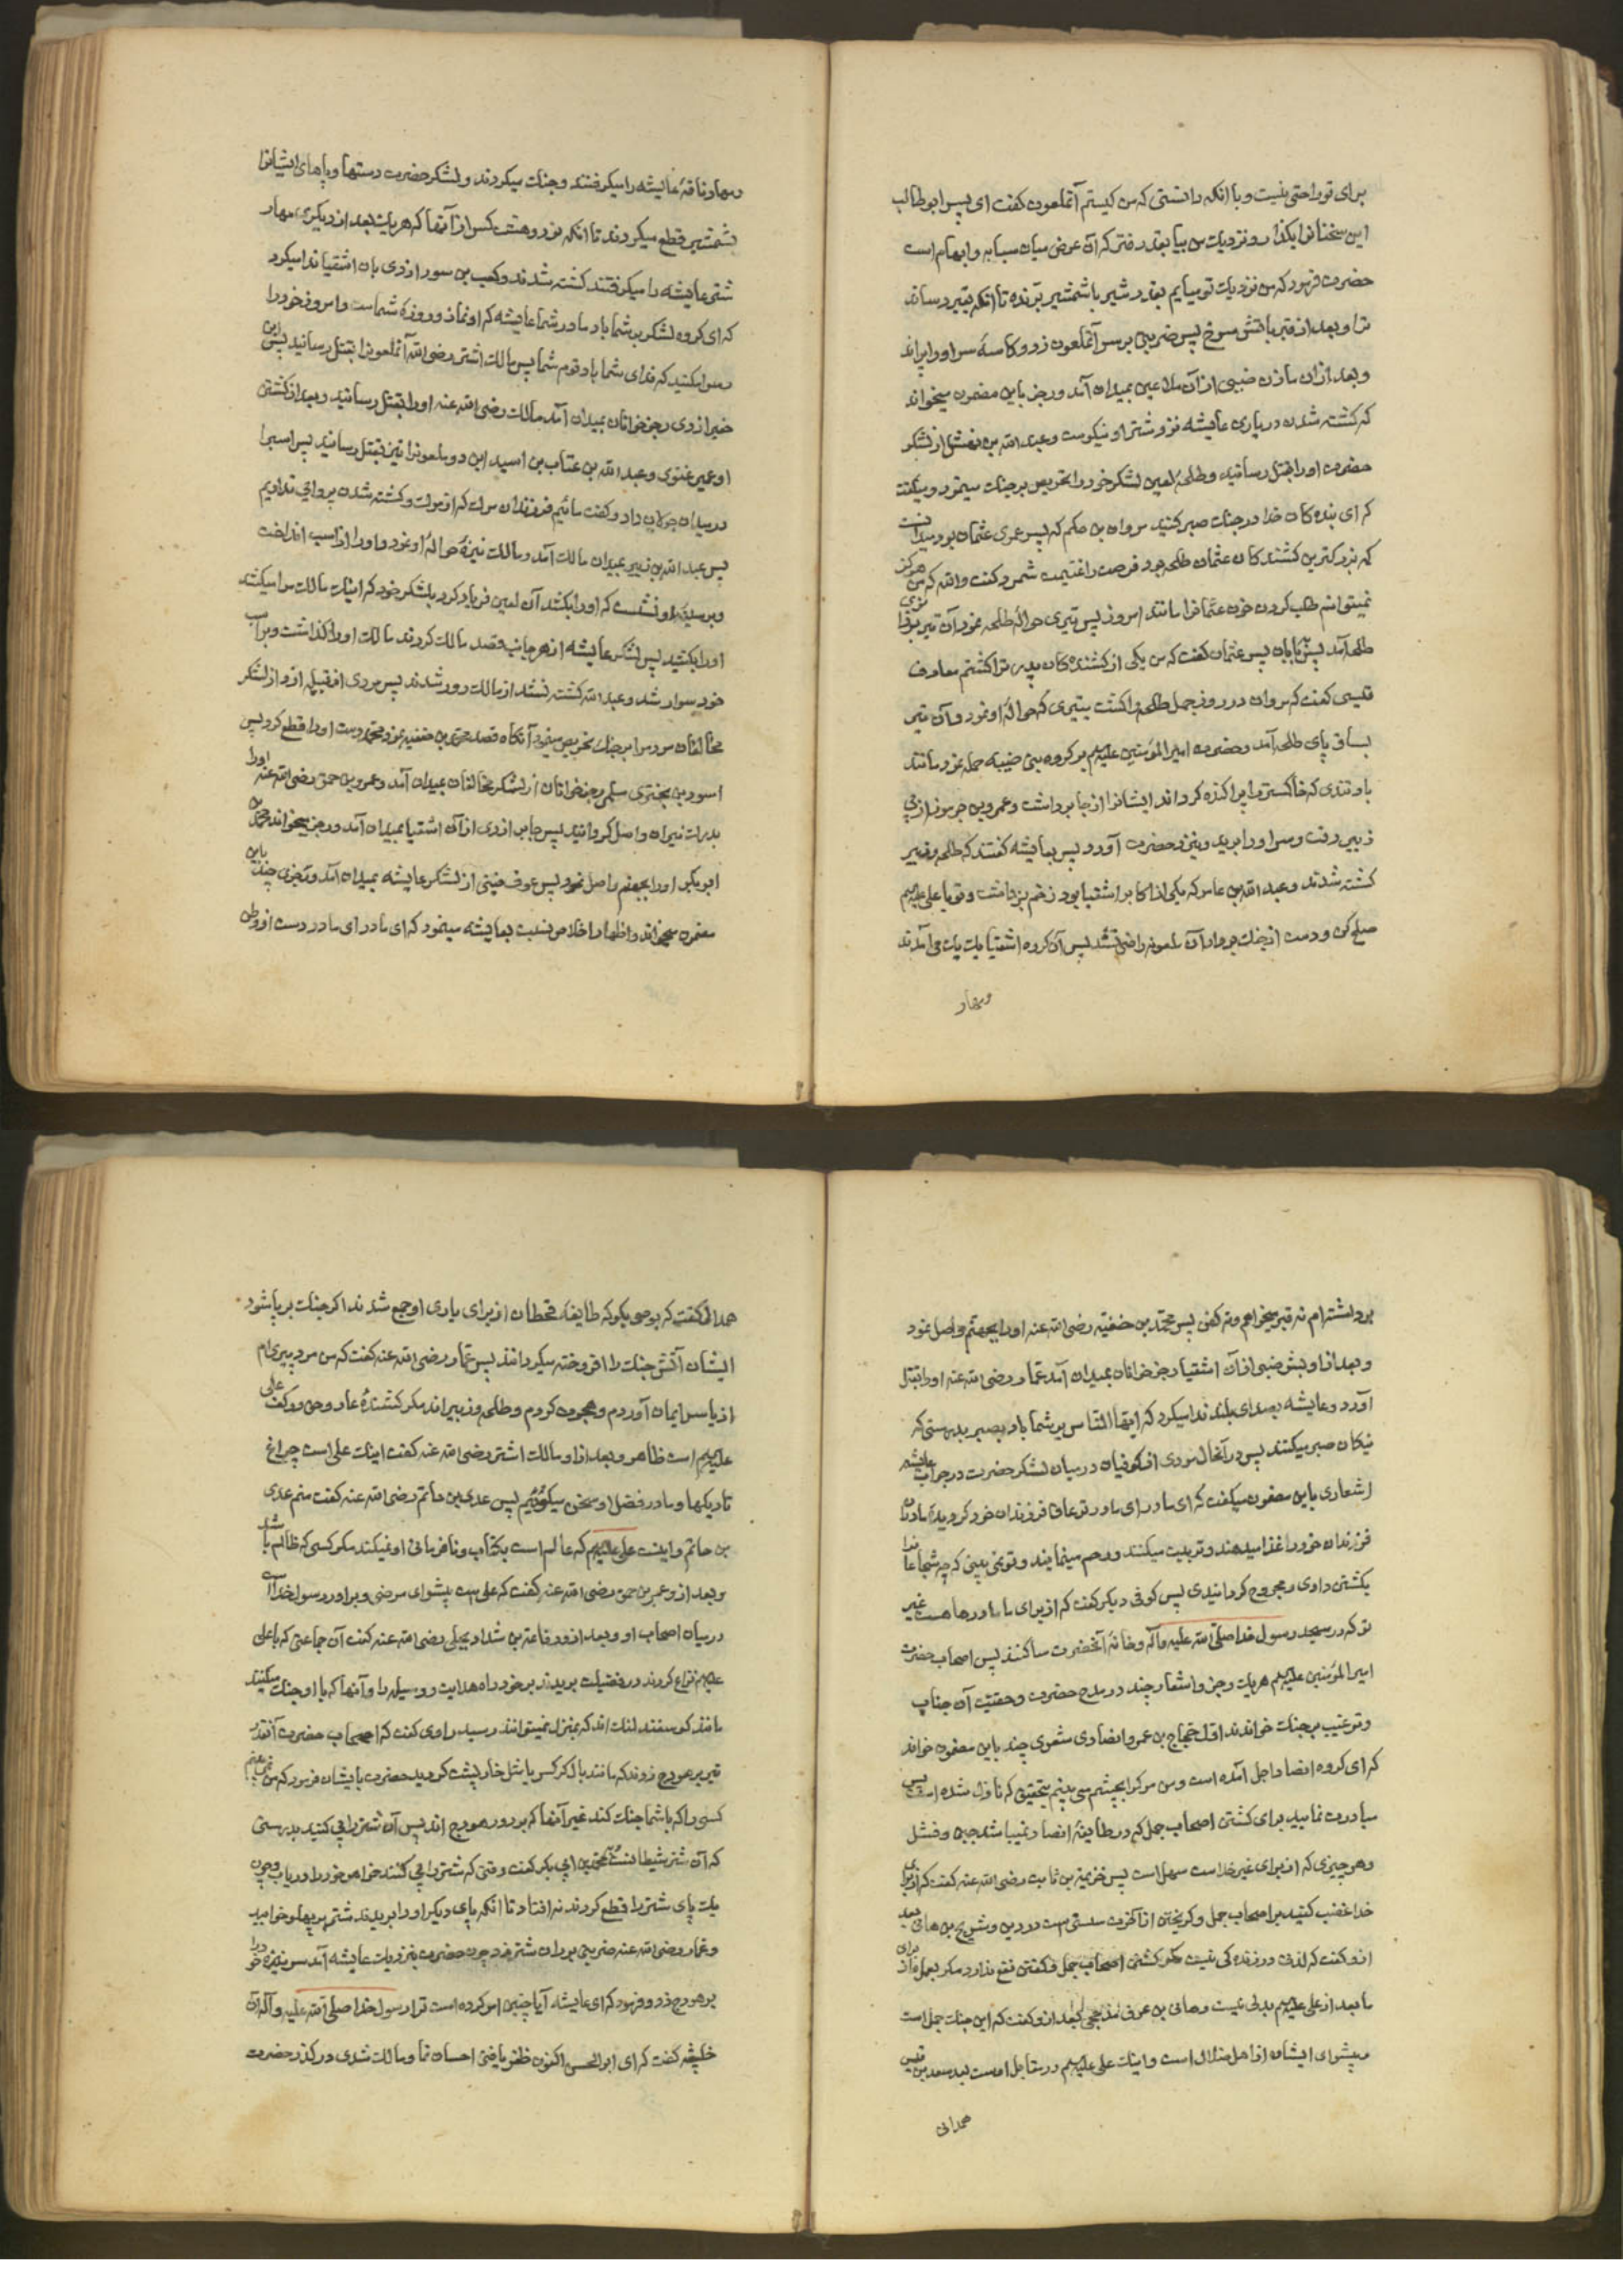 برای تو راحتی نیست و با انکه دانستی که من کیستم آنملعون کفت ای پسر ابوطالب
این سخنانرا بکذار و نزدیک من بیا بقدر رفتن که آن عرض میان سبابه و ابهام است
حضرت فرمود که من نزدیک تو میایم بقدر شبر با شمشیر برنده تا انکه بقبر رساند
ترا و بعد از قبر باتش سرخ پس ضربتی بر سر آنملعون زد و کاسهٔ سر او را پراند
و بعد از ان مازن ضبی از آن ملاعین بمیدان آمد و رجز باین مضمون میخواند
که کشته شدن در یاری عایشه نزد شتر او نیکوست و عبد الله بن نهشل از لشکر
حضرت او را بقتل رسانید و طلحهٔ لعین لشکر خود را تحریص بر جنک مینمود و میکفت
که ای بنده کان خدا در جنک صبر کنید مروان بن حکم که پسر عموی عثمان بود میدانست
که بزرکترین کشنده کان عثمان طلحه بود فرصت را غنیمت شمرد و کفت والله که من هرکز
نمیتوانم طلب کردن خون عثمانرا مانند امروز پس تیری حوالهٔ طلحه نمود و آن تیر بر
طلحه آمد پس بابان پسر عثمان کفت که من یکی از کشنده کان پدر ترا کشتم معارف
قتیبی کفت که مروان در روز جمل طلحه را کشت بتیری که حوالهٔ او نمود و آن تیر
بساق پای طلحه آمد و حضرت امیر المؤمنین علیهم بر کروه بنی ضبه حمله نمود مانند
باد تندی که خاکستر را پراکنده کرداند ایشانرا از جا برداشت و عمرو بن جرموز از پی
زبیر رفت و سر او را برید و بنزد حضرت آورد پس بعایشه کفتند که طلحه و زبیر
کشته شدند و عبد الله بن عامر که یکی از اکابر اشقیا بود زخم برداشت و تو با علی علیهم
صلح کن و دست از جنک بردار آن ملعونه راضی نشد پس آن کروه اشقیا یک یک می آمدند
و مهار
و مهار ناقهٔ عایشه را میکرفتند و جنک میکردند و لشکر حضرت دستها و پاهای ایشانرا
بشمشیر قطع میکردند تا انکه نود و هشت کس از آنها که هر یک بعد از دیکری مهار
شتر عایشه را میکرفتند کشته شدند و کعب بن سور ازدی بان اشقیا ندا میکرد
که ای کروه لشکر بر شما باد مادر شما عایشه که او نماز و روزهٔ شماست و امروز خود را
رسوا مکنید که فدای شما باد قوم شما پس مالک اشتر رضی الله آنملعونرا بقتل رسانید پس ابن
خبر ازدی رجز خوانان بمیدان آمد مالک رضی الله عنه او را بقتل رسانید و بعد از کشتن
او عمیر غنوی و عبد الله بن عتاب بن اسید این دو ملعونرا نیز بقتل رسانید پس اسبرا
در میدان جولان داد و کفت مائیم فرزندان مرک که از مرک و کشته شدن پروائی نداریم
پس عبد الله بن زبیر بمیدان مالک آمد و مالک نیزهٔ حوالهٔ او نمود و او را از اسب انداخت
و بر سینهٔ او نشست که او را بکشد آن لعین فریاد کرد بلشکر خود که اینک مالک مرا میکشد
او را بکشید پس لشکر عایشه از هر جانب قصد مالک کردند مالک او را کذاشت و بر اسب
خود سوار شد و عبد الله کشته نشد از مالک دور شدند پس مردی از قبیله ازد از لشکر
مخالفان مردم را بر جنک تحریص مینمود آنکاه قصد محمد بن حنفیه نمود محمد دست او را قطع کرد پس
اسود بن بختری سلمی رجز خوانان از لشکر مخالفان بمیدان آمد و عمرو بن حمق رضی الله عنه او را
بدرک نیران واصل کردانید پس جابر ازدی از آن اشقیا بمیدان آمد و رجز میخواند محمد بن
ابو بکر او را بجهنم واصل نمود پس عوف قینی از لشکر عایشه بمیدان آمد و رجزی چند باین
مضمون میخواند و اظهار اخلاص نسبت بعایشه مینمود که ای مادر ای مادر دست از وطن
برداشته ام نه قبر میخواهم و نه کفن پس محمد بن حنفیه رضی الله عنه او را بجهنم واصل نمود
و بعد از او بشر ضبی از آن اشقیا رجز خوانان بمیدان آمد عمار رضی الله عنه او را بقتل
آورد و عایشه بصدای بلند ندا میکرد که ایها الناس بر شما باد بصبر بدرستی که
نیکان صبر میکنند پس در آنحال مردی از کوفیان در میان لشکر حضرت در جواب عایشه
اشعاری باین مضمون میکفت که ای مادر ای مادر تو عاق فرزندان خود کردیدهٔ مادران
فرزندان خود را غذا میدهند و تربیت میکنند و رحم مینمایند و تو نمی بینی که چه شجاعانرا
بکشتن دادی و مجروح کردانیدی پس کوفی دیکر کفت که از برای ما مادرها هست غیر
تو که در مسجد رسول خدا صلی الله علیه و آله و خانهٔ آنحضرت ساکنند پس اصحاب حضرت
امیر المؤمنین علیهم هر یک رجز و اشعار چند در مدح حضرت و حقیت آن جناب
و ترغیب بر جنک خواندند اول حجاج بن عمرو انصاری شعری چند باین مضمون خواند
که ای کروه انصار اجل آمده است و من مرک را بچشم می بینم بتحقیق که نازل شده است پس
مبادرت نمایید برای کشتن اصحاب جمل که در طایفهٔ انصار نمیباشد جبن و فشل
و هر چیزی که از برای غیر خداست سهل است پس خزیمة بن ثابت رضی الله عنه کفت که از برای
خدا غضب کنید بر اصحاب جمل و کریختن از آخرت سستی است در دین و شریح بن هانی بعد
از و کفت که لذتی در زنده کی نیست مکر کشتن اصحاب جمل و کفتن نفع ندارد مکر بعمل و از برای
ما بعد از علی علیهم بدلی نیست و هانی بن عروه مذحجی بعد از و کفت که این جنک جمل است
و پیشوای ایشان از اهل ضلال است و اینک علی علیهم در مقابل اوست بعد سعد بن قیس
همدانی
همدانی کفت که بوصی بکو که طایفهٔ قحطان از برای یاری او جمع شدند اکر جنک بر پا شود
ایشان آتش جنک را افروخته میکردانند پس عمار رضی الله عنه کفت که من مرد پیری ام
از یاسر ایمان آوردم و هجرت کردم و طلحه و زبیر اند مکر کشندهٔ عمار و حق در کف علی
علیهم است ظاهر و بعد از او مالک اشتر رضی الله عنه کفت اینک علی است چراغ
تاریکها و ما در فضل او سخن میکوئیم پس عدی بن حاتم رضی الله عنه کفت منم عدی
بن حاتم و اینست علی علیهم که عالم است بکتاب و نافرمانی او نمیکند مکر کسی که ظالم باشد
و بعد از و عمرو بن حمق رضی الله عنه کفت که علی است پیشوای مرضی و برادر رسول خدا است
در میان اصحاب او و بعد از و رفاعة بن شداد بجلی رضی الله عنه کفت آن جماعتی که با علی
علیهم نزاع کردند در فضیلت بریدند بر خود راه هدایت و وسیله را و آنها که با او جنک میکنند
مانند کوسفند لنک اند که بمنزل نمیتوانند رسید راوی کفت که اصحاب حضرت آنقدر
تیر بر هودج زدند که مانند بال کرکس یا مثل خارپشت کردید حضرت بایشان فرمود که من نمی بینم
کسی را که با شما جنک کند غیر آنها که بر دور هودج اند پس آن شتر را پی کنید بدرستی
که آن شتر شیطانست محمد بن ابی بکر کفت وقتی که شتر را پی کنند خواهر خود را دریاب و چون
یک پای شتر را قطع کردند نه افتاد تا انکه پای دیکر او را بریدند شتر بر پهلو خوابید
و عمار رضی الله عنه ضربتی بر ران شتر زد و چون حضرت بنزدیک عایشه آمد سر نیزه خود را
بر هودج زد و فرمود که ای عایشه آیا چنین امر کرده است ترا رسول خدا صلی الله علیه و آله آن
خبیثه کفت که ای ابو الحسن اکنون ظفر یافتی احسان نما و مالک شدی در کذر حضرت